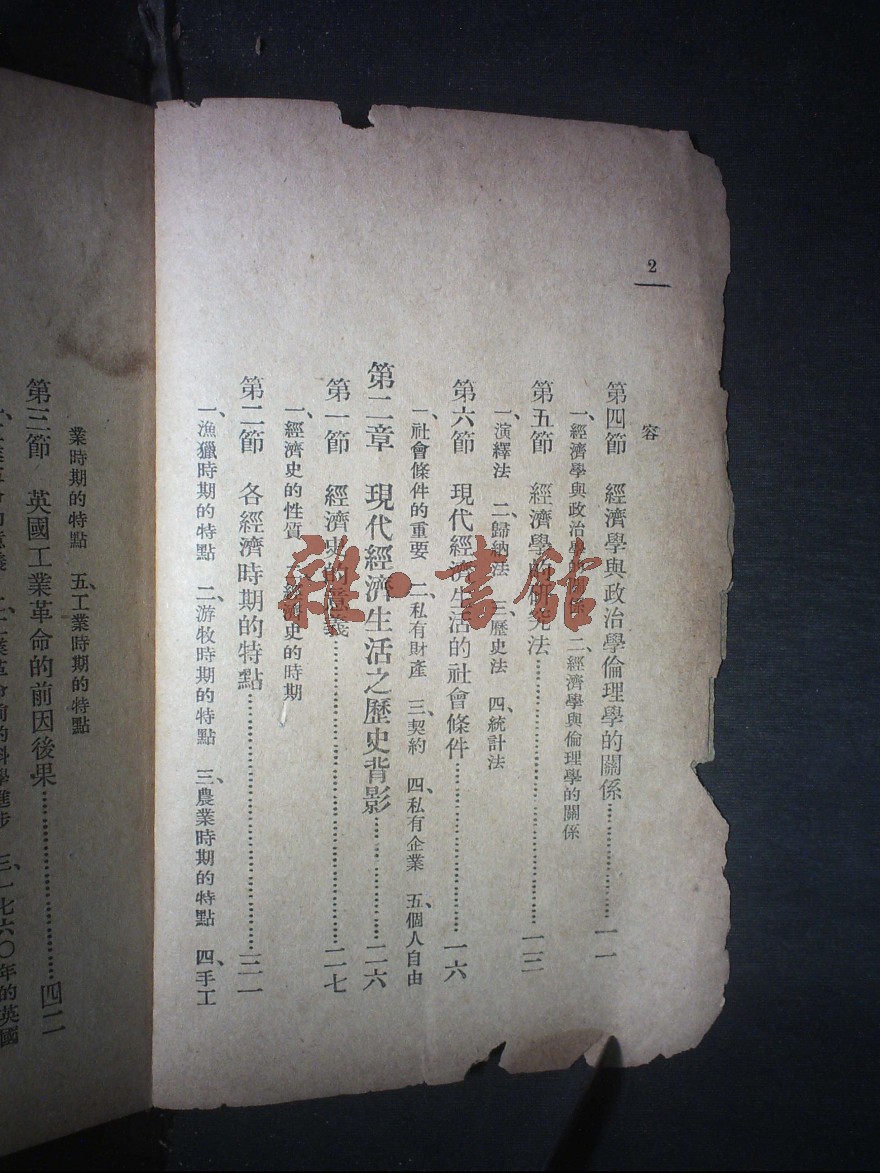 2
容
第四節 經濟學與政治學倫理學的關係……………一一
一、經濟學與政治學的關係 二、經濟學與倫理學的關係
第五節 經濟學的研究法……………一三
一、演繹法 二、歸納法 三、歷史法 四、統計法
第六節 現代經濟生活的社會條件……………一六
一、社會條件的重要 二、私有財產 三、契約 四、私有企業 五、個人自由
第二章 現代經濟生活之歷史背影……………二六
第一節 經濟史的意義……………二七
一、經濟史的性質 二、經濟史的時期
第二節 各經濟時期的特點……………三二
一、漁獵時期的特點 二、游牧時期的特點 三、農業時期的特點 四、手工
業時期的特點 五、工業時期的特點
第三節 英國工業革命的前因後果……………四二
二、工業革命前的科學進步 三、一七六〇年的英國
雜·書館